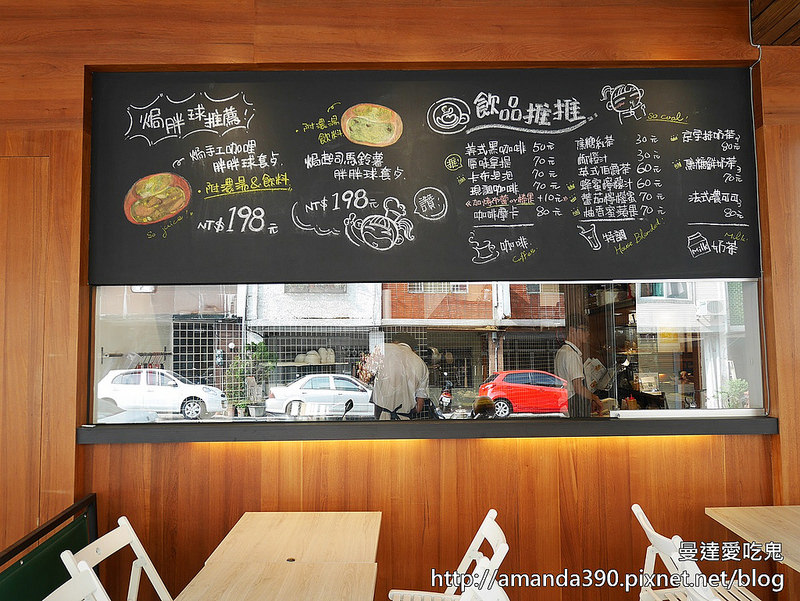 焗胖球推薦
焗手工咖哩
胖胖球套点
附濃湯&飲料
NT$198元
So juicy!
附濃湯
飲料
焗起司馬鈴薯
胖胖球套点
NT$198元
讚!
飲品推推...
美式黑咖啡 50元
原味拿提 70元
推
卡布泡泡 70元
現調咖啡 70元
+10元
咖啡摩卡 80元
咖啡
Coffee
蕉糖紅茶 30元
檸檬汁 30元
英式伯爵茶 60元
蜂蜜檸檬汁 60元
蕃茄檸檬蜜 70元
柚香蜜蘋果 70元
特調
House Blended!
so cool!
京宇抹奶茶 80元
焦糖鮮奶茶 70元
法式濃可可 80元
Milk
milk
奶茶
曼達愛吃鬼
http://amanda390.pixnet.net/blog